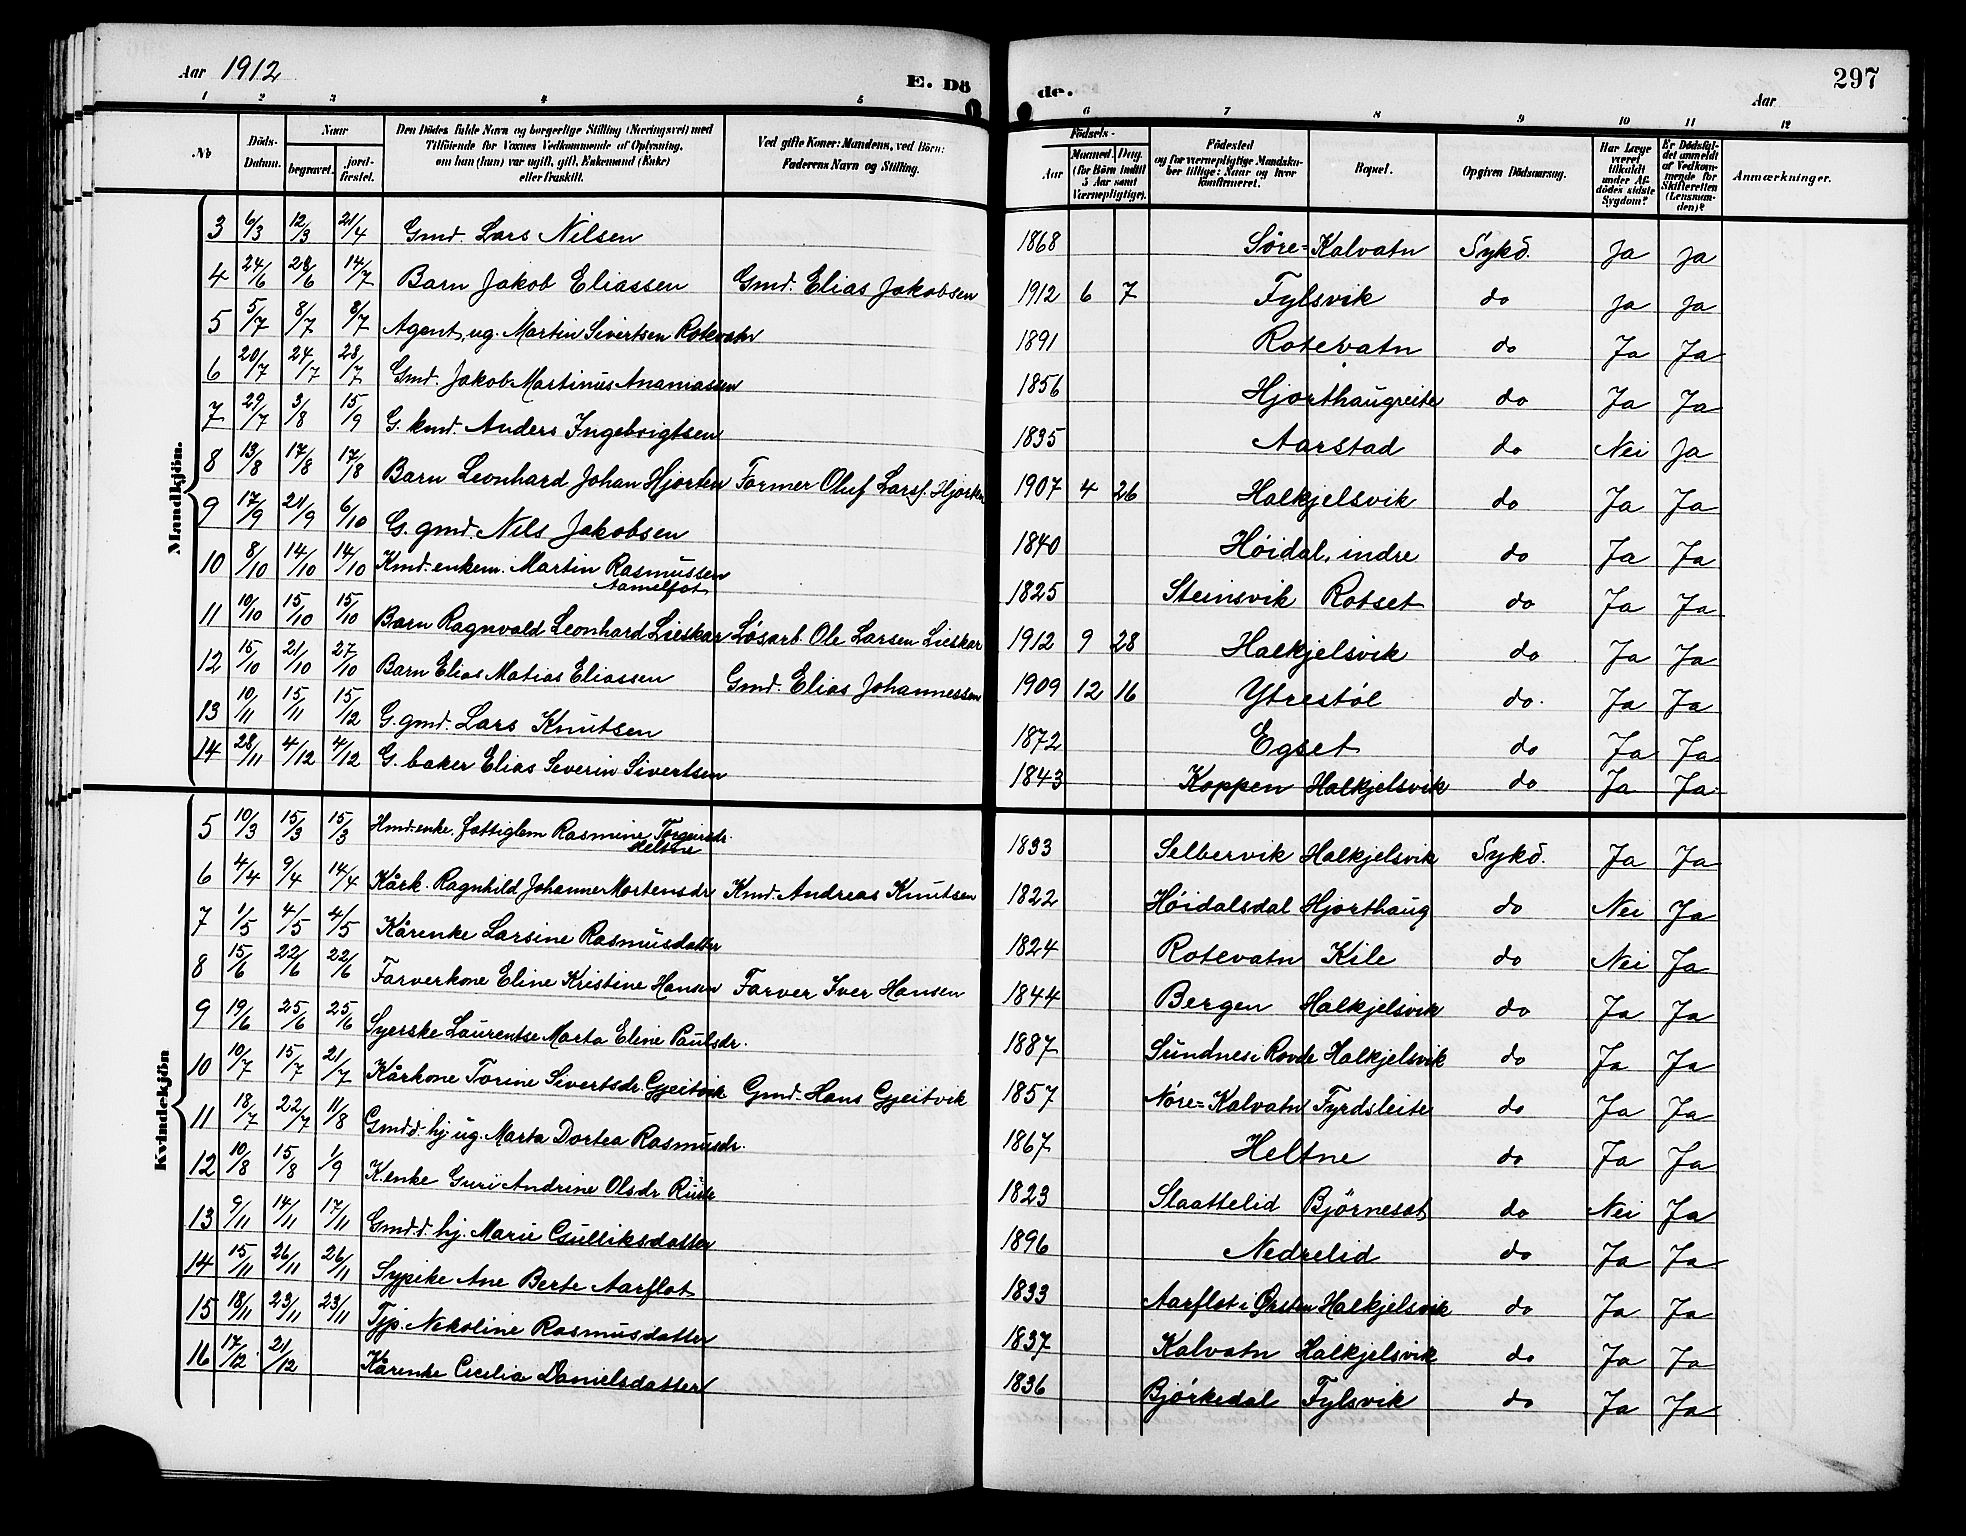 Aar 1912
E. Dö
de.
Aar
297
1 2 3 4 5 6 7 8 9 10 11 12
No Döds-Datum. Naar begravet. jord-fæstet. Den Dödes fulde Navn og borgerlige Stilling (Næringsvei) med Tilföiende for Voxnes Vedkommende af Oplysning, om han (hun) var ugift, gift, Enkemand (Enke) eller fraskilt. Ved gifte Koner: Mandens, ved Börn: Faderens Navn og Stilling. Födsels- Aar Maaned. Dag. (for Börn indtil 5 Aar samt Værnepligtige). Födested og for værnepligtige Mandskaber tillige: Naar og hvor konfirmeret. Bopæl. Opgiven Dödsaarsag. Har Læge været tilkaldt under Afdödes sidste Sygdom? Er Dödsfaldet anmeldt af Vedkommende for Skifteretten (Lensmanden)? Anmærkninger.
Mandkjön.
3 6/3 12/3 21/4 Gmd. Lars Nilsen 1868 Søre=Kalvatn Sykd. Ja Ja
4 24/6 28/6 14/7 Barn Jakob Eliassen Gmd. Elias Jakobsen 1912 6 7 Fylsvik do Ja Ja
5 5/7 8/7 8/7 Agent, ug. Martin Sivertsen Rotevatn 1891 Rotevatn do Ja Ja
6 20/7 24/7 28/7 Gmd. Jakob Martinus Ananiassen 1856 Hjorthaugreite do Ja Ja
7 29/7 3/8 15/9 G. kmd. Anders Ingebrigtsen 1835 Aarstad do Nei Ja
8 13/8 17/8 17/8 Barn Leonhard Johan Hjorten Farmer Oluf Larsf. Hjorten 1907 4 26 Halkjelsvik do Ja Ja
9 17/9 21/9 6/10 G. gmd. Nils Jakobsen 1840 Høidal, indre do Ja Ja
10 8/10 14/10 14/10 Kmd. enkem. Martin Rasmussen Aamelfot 1825 Steinsvik Rotset do Ja Ja
11 10/10 15/10 15/10 Barn Ragnvald Leonhard Lieskar Løsarb. Ole Larsen Lieskar 1912 9 28 Halkjelsvik do Ja Ja
12 15/10 21/10 27/10 Barn Elias Matias Eliassen Gmd. Elias Johannessen 1909 12 16 Ytrestøl do. Ja Ja
13 10/11 15/11 15/12 G. gmd. Lars Knutsen 1872 Egset do Ja Ja
14 28/11 4/12 4/12 G. baker Elias Severin Sivertsen 1843 Koppen Halkjelsvik do Ja Ja
Kvindekjön
5 10/3 15/3 15/3 Hmd. enke, fattiglem Rasmine Torgeirsdr. Heltne 1833 Selbervik Halkjelsvik Sykd. Ja Ja
6 4/4 9/4 14/4 Kårk. Ragnhild Johanne Mortensdr Kmd. Andreas Knutsen 1822 Høidalsdal Hjorthaug do Nei Ja
7 1/5 4/5 4/5 Kårenke Larsine Rasmusdatter 1824 Rotevatn Kile do Nei Ja
8 15/6 22/6 22/6 Farverkone Eline Kristine Hansen Farver Iver Hansen 1844 Bergen Halkjelsvik do Ja Ja
9 19/6 25/6 25/6 Syerske Laurentse Marta Eline Paulsdr. 1887 Sundnes i Rovde Halkjelsvik do Ja Ja
10 10/7 15/7 21/7 Kårkone Torine Sivertsdr. Gjeitvik Gmd. Hans Gjeitvik 1857 Nøre=Kalvatn Fyrdsleite do Ja Ja
11 18/7 22/7 11/8 Gmd.d. hj. ug. Marta Dortea Rasmusdr. 1867 Heltne do Ja Ja
12 10/8 15/8 1/9 K. enke Guri Andrine Olsdr 1823 Slaattelid Bjørneset do Nei Ja
13 9/11 14/11 17/11 Gmd.d. hj. Marie Gulliksdatter 1896 Nedrelid do Ja Ja
14 15/11 26/11 26/11 Sypike Ane Berte Aarflot 1833 Aarflot i Ørsten Halkjelsvik do Ja Ja
15 18/11 23/11 23/11 Tjp. Nekoline Rasmusdatter 1837 Kalvatn Halkjelsvik do Ja Ja
16 17/12 21/12 Kårenke Cicilia Danielsdatter 1836 Bjørkedal Fylsvik do Ja Ja